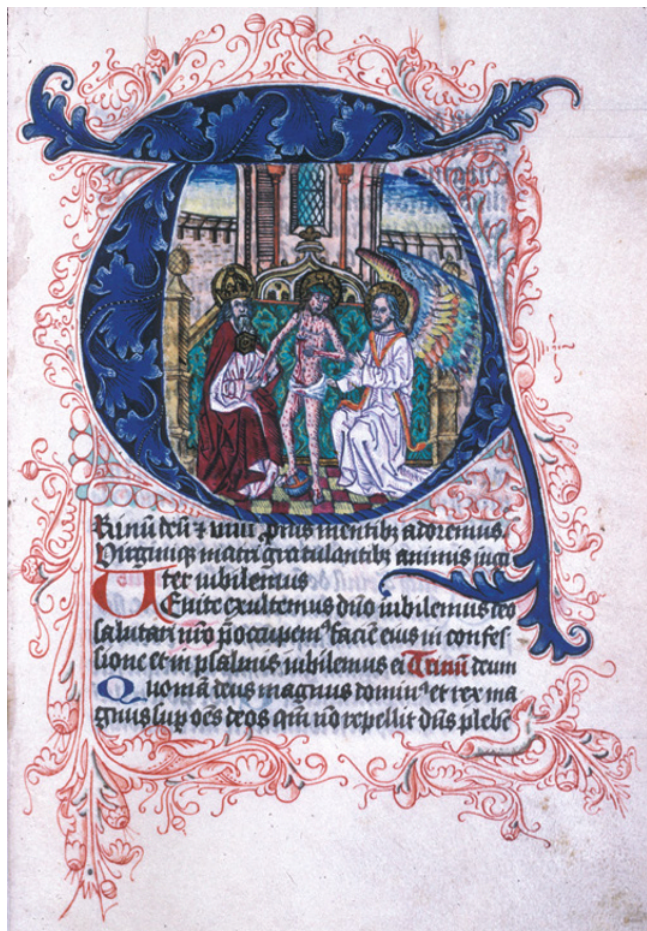 Rinū deū ⁊ unū prius mentibꝫ adoremus.
Virginiqꝫ matri gratulantibꝫ animis iugi
Ter iubilemus
Venite exultemus dn̄o iubilemus deo
salutari nr̄o p̄occupemꝰ faciē eius in confes
sione et in psalmis iubilemus ei Trinū deum
Quoniā deus magnus dominꝰ et rex ma
gnus suꝑ oēs deos qm̄ nō repellit dn̄s plebē